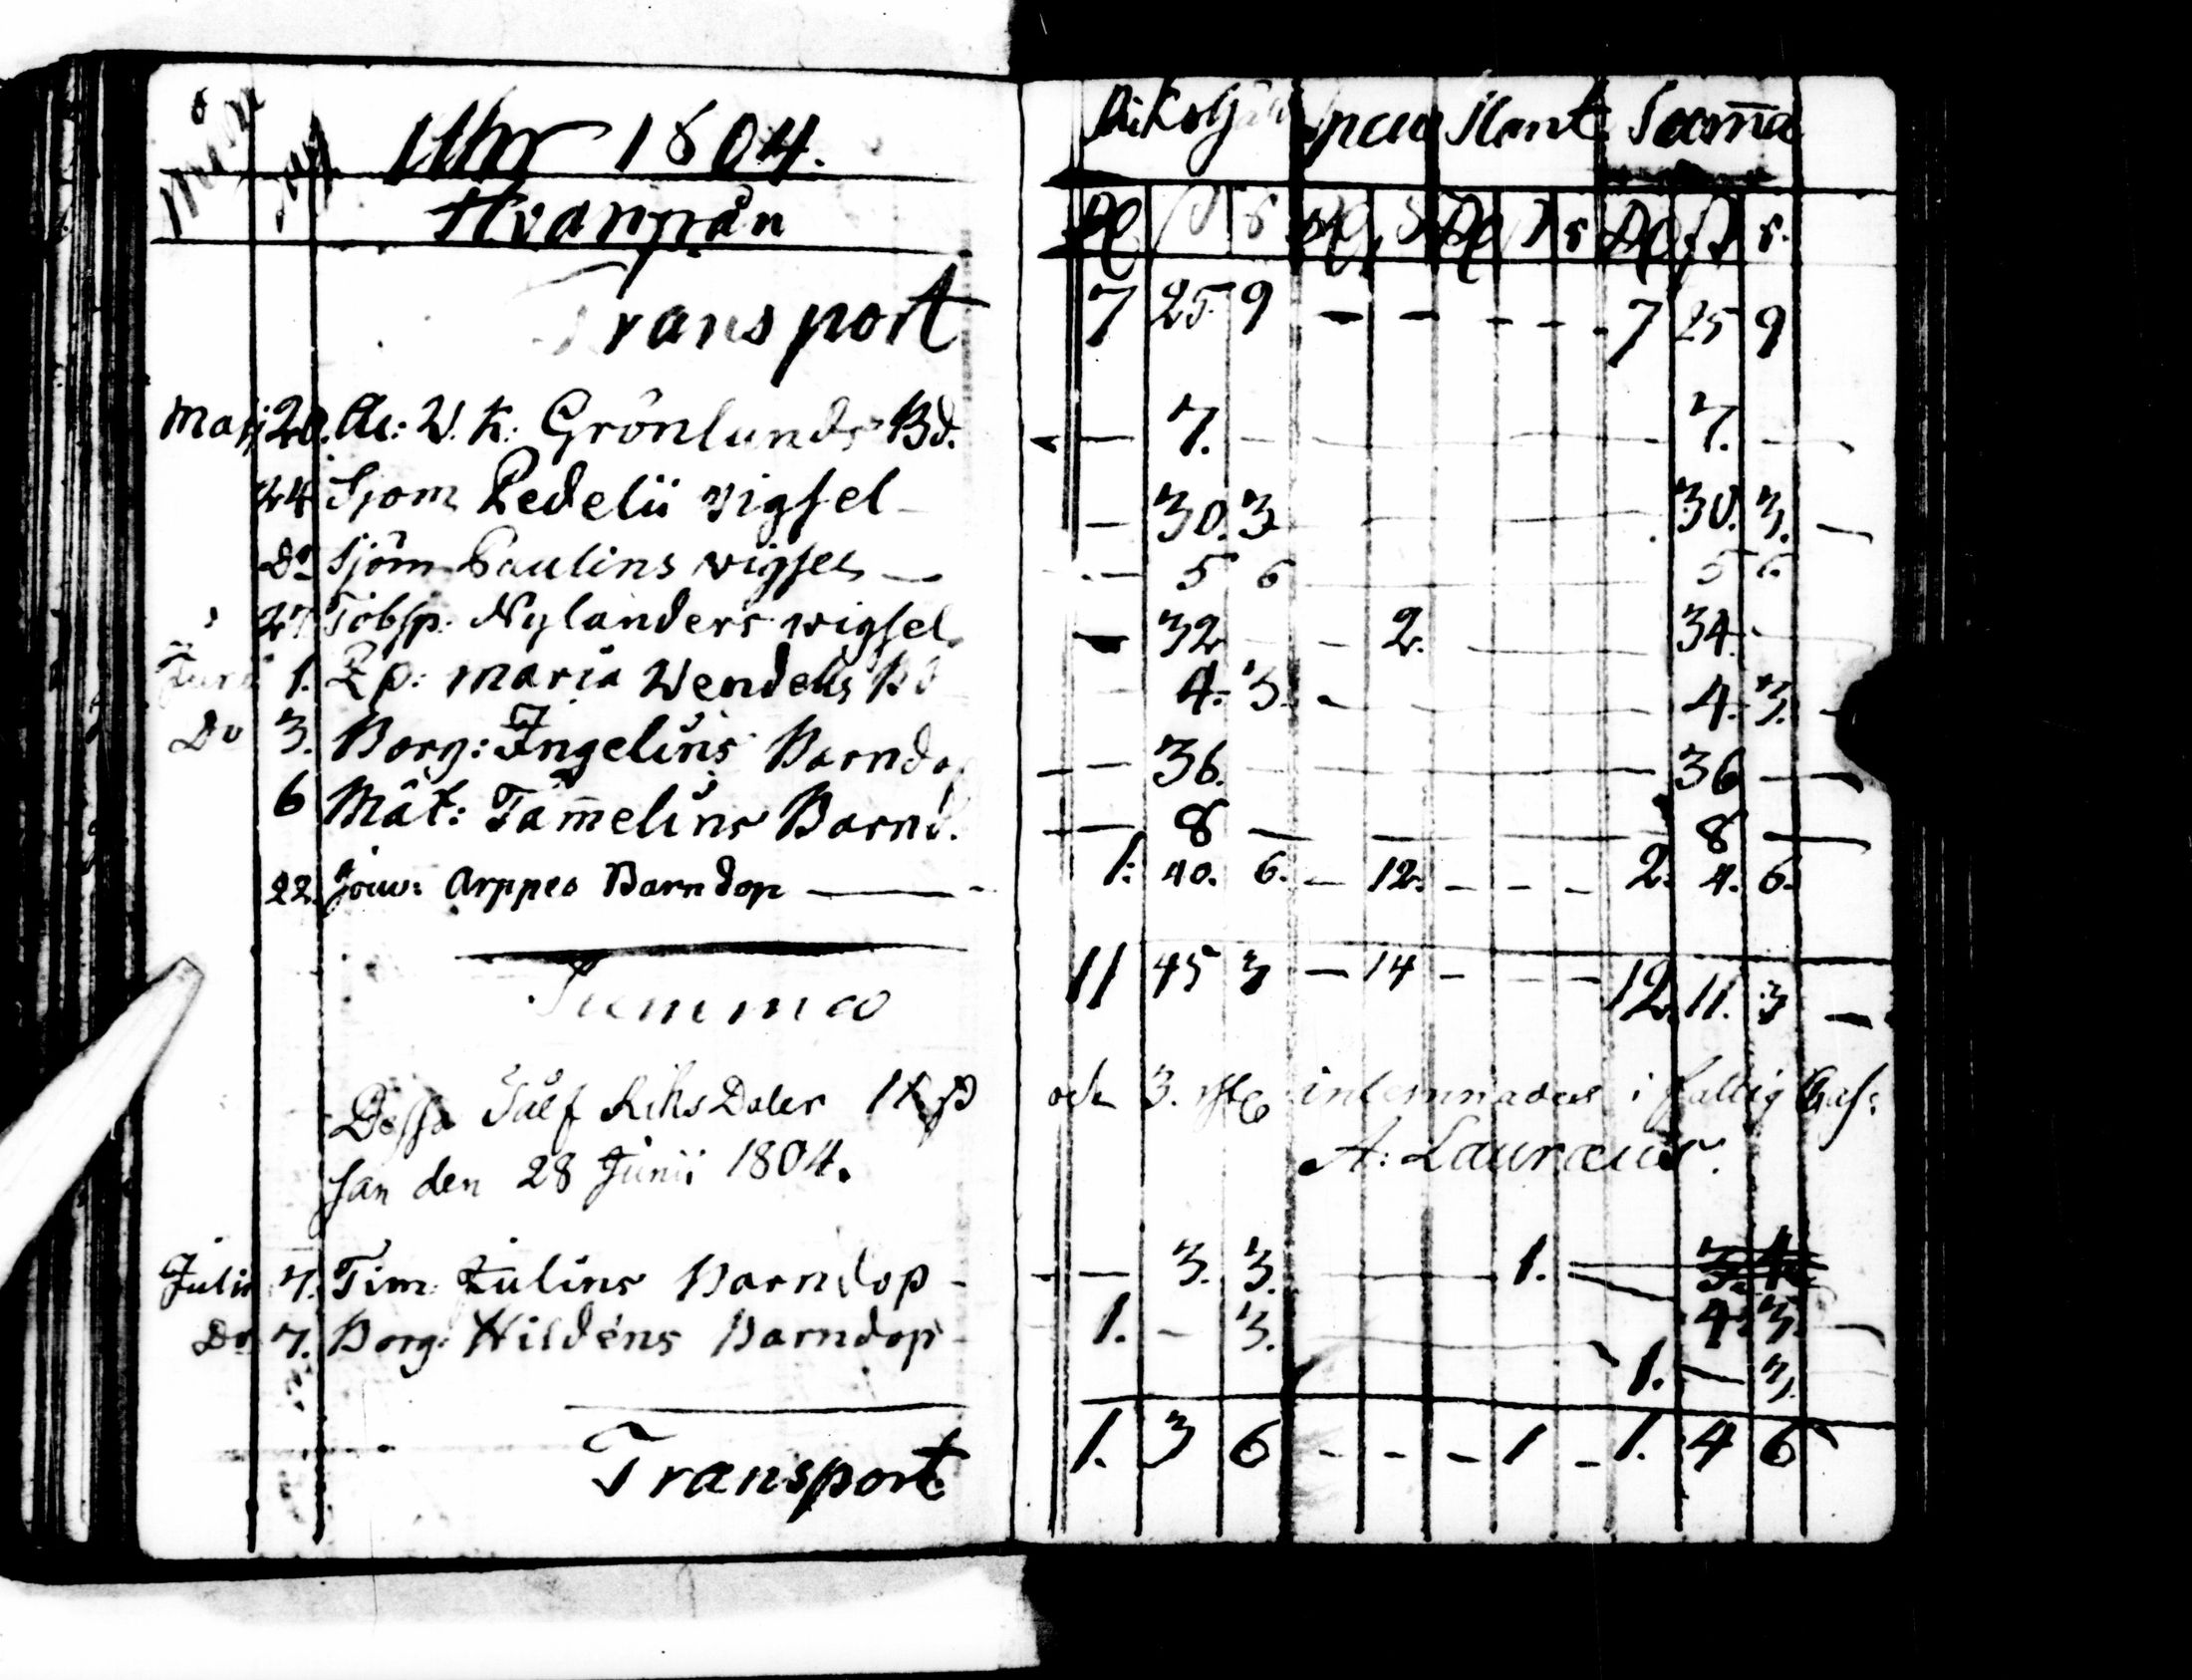 Åhr 1804. Riksg Specie Slant Summa
Hvarpån Rd ß r Rd ß Rd ß r Rd ß r.
Transport 7 25. 9 - - - - - 7 25 9
Maji 20. Ac: W. K: Grönlunds Bd. — 7. — 7. —
24 Sjom Pedelii vigsel — 30. 3 — 30. 3. —
Do Sjöm Paulins wigsel — — 5 6 — 5 6
27 Tobsp. Nylanders wigsel — 32 — 2. — 34 —
Junii 1. Pp: Maria Wendelis Bd — 4. 3. — 4. 3. —
Do 3. Borg: Ingelins Barndop — 36. — 36 —
6 Mât: Tam̄elins Barnd. — 8 — 8 —
22. Jouv: Arppes Barndop — 1: 40. 6. — 12. - - - 2. 4. 6.
Summa 11 45 3 — 14 - - - 12. 11. 3 —
Dessa Tålf Riks Daler 11 ß och 3. inlemnades i fattig Cas:
san den 28 Junii 1804. A: Lauræus.
Julii 7. Tim: Julins Barndop - — 3. 3. — 1. =
Do 7. Borg: Hildéns Barndop - 1. - 3. — 4. 3. —
1. — 3.
Transport 1. 3 6 - - - 1 - 1. 4 6